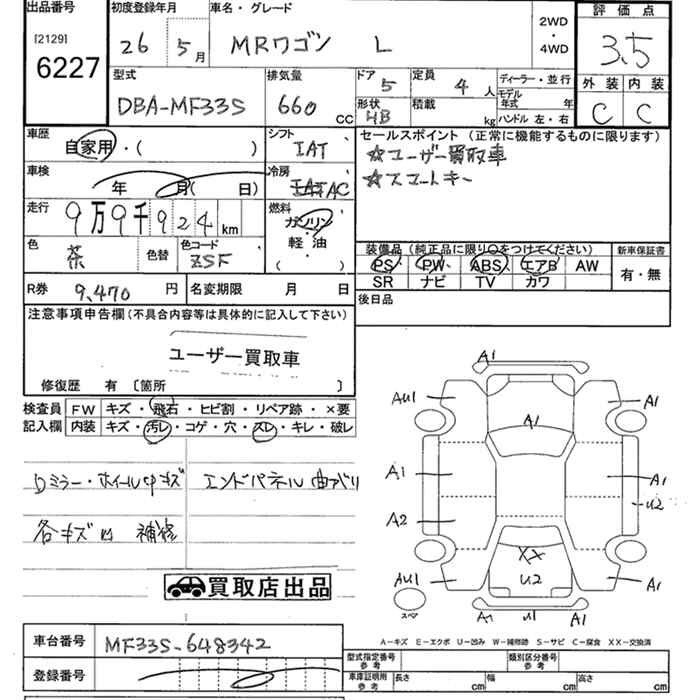 出品番号 初度登録年月 車名・グレード 評価点
[2129] 6227 26 5月 MRワゴン L 2WD・4WD 3.5
型式 排気量 ドア 5 定員 4人 ディーラー・並行 外装 内装
DBA-MF33S 660 CC 形状 HB 積載 kg モデル年式 年 ハンドル 左・右 C C
車歴 自家用・( ) シフト IAT セールスポイント (正常に機能するものに限ります)
☆ユーザー買取車
☆スマートキー
車検 年 月( 日) 冷房 AC
走行 9万9千924km 燃料 ガソリン 軽油 ( )
色 茶 色替 色コード ZSF 装備品(純正品に限り○をつけてください) 新車保証書
PS PW ABS エアB AW 有・無
SR ナビ TV カワ
R券 9,470円 名変期限 月 日 後日品
注意事項申告欄(不具合内容等は具体的に記入して下さい)
ユーザー買取車
修復歴 有 〔箇所 〕
検査員 FW キズ・飛石・ヒビ割・リペア跡・×要
記入欄 内装 キズ・汚レ・コゲ・穴・スレ・キレ・破レ
Dミラー・ホイール中キズ エンドパネル曲がり
各キズ凹 補修
買取店出品
A1
AU1 A1
A1
A1 A1
U2
A2
XX
AU1 U2 A1
スペア A1 U1 A1
A-キズ E-エクボ U-凹み W-補修跡 S-サビ C-腐食 XX-交換済
車台番号 MF33S-648342 型式指定番号 参考 類別区分番号 参考
登録番号 車庫証明用 参考 長さ cm 幅 cm 高さ cm